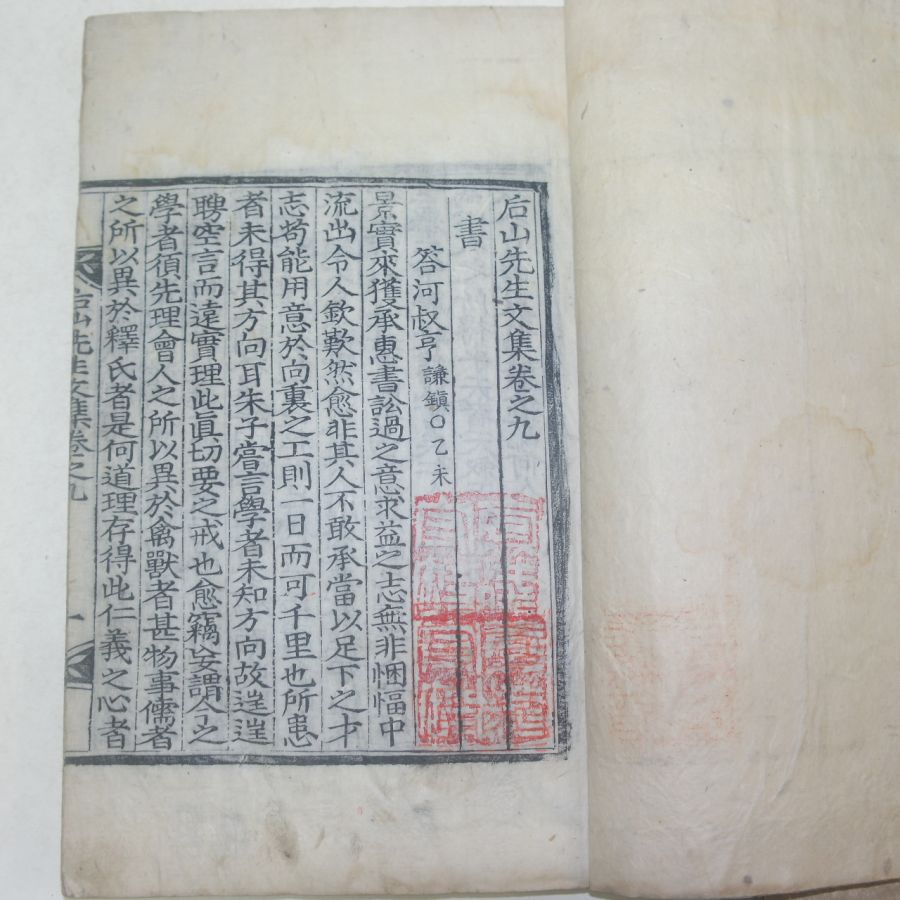 后山先生文集卷之九
書
答河叔亨 謙鎭○乙未
景實來獲承惠書訟過之意求益之志無非悃愊中
流出令人歎歎然愈非其人不敢承當以足下之才
志苟能用意於向裏之工則一日而可千里也所患
者未得其方向耳朱子嘗言學者未知方向故逞逞
聘空言而遠實理此眞切要之戒也愈竊妄謂今之
學者須先理會人之所以異於禽獸者甚物事儒者
之所以異於釋氏者是何道理存得此仁義之心者
后山先生文集卷之九
一